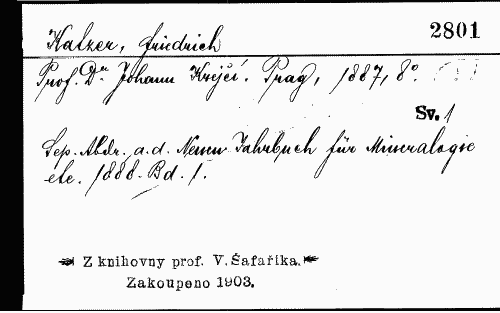 2801
Katzer, Friedrich
Prof. Dr. Johann Krejčí. Prag, 1887, 8°.
Sv. 1
Sep. Abdr. a. d. Neuen Jahrbuch für Mineralogie
etc. 1888. Bd. 1.
Z knihovny prof. V. Šafaříka.
Zakoupeno 1903.